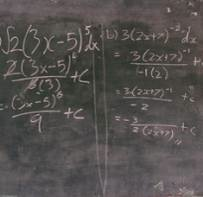 ∫2(3x-5)⁵dx
2(3x-5)⁶
6(3) +c
= (3x-5)⁶
9 +c
b) 3(2x+7)⁻²dx
= 3(2x+7)⁻¹
-1(2) +
= 3(2x+7)⁻¹
-2 +c
= -3
2(2x+7) +c